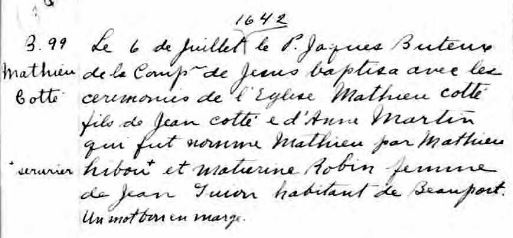 1642
B. 99 Le 6 de Juillet le P. Jaques Buteux
Mathieu de la Comp^ie de Jesus baptisa avec les
Cotté ceremonies de l'Eglise Mathieu cotté
fils de Jean cotté e d'Anne Martin
qui fut nomme Mathieu par Mathieu
+serurier hibou+ et maturine Robin femme
de Jean Guion habitant de Beauport.
Un mot bon en marge.